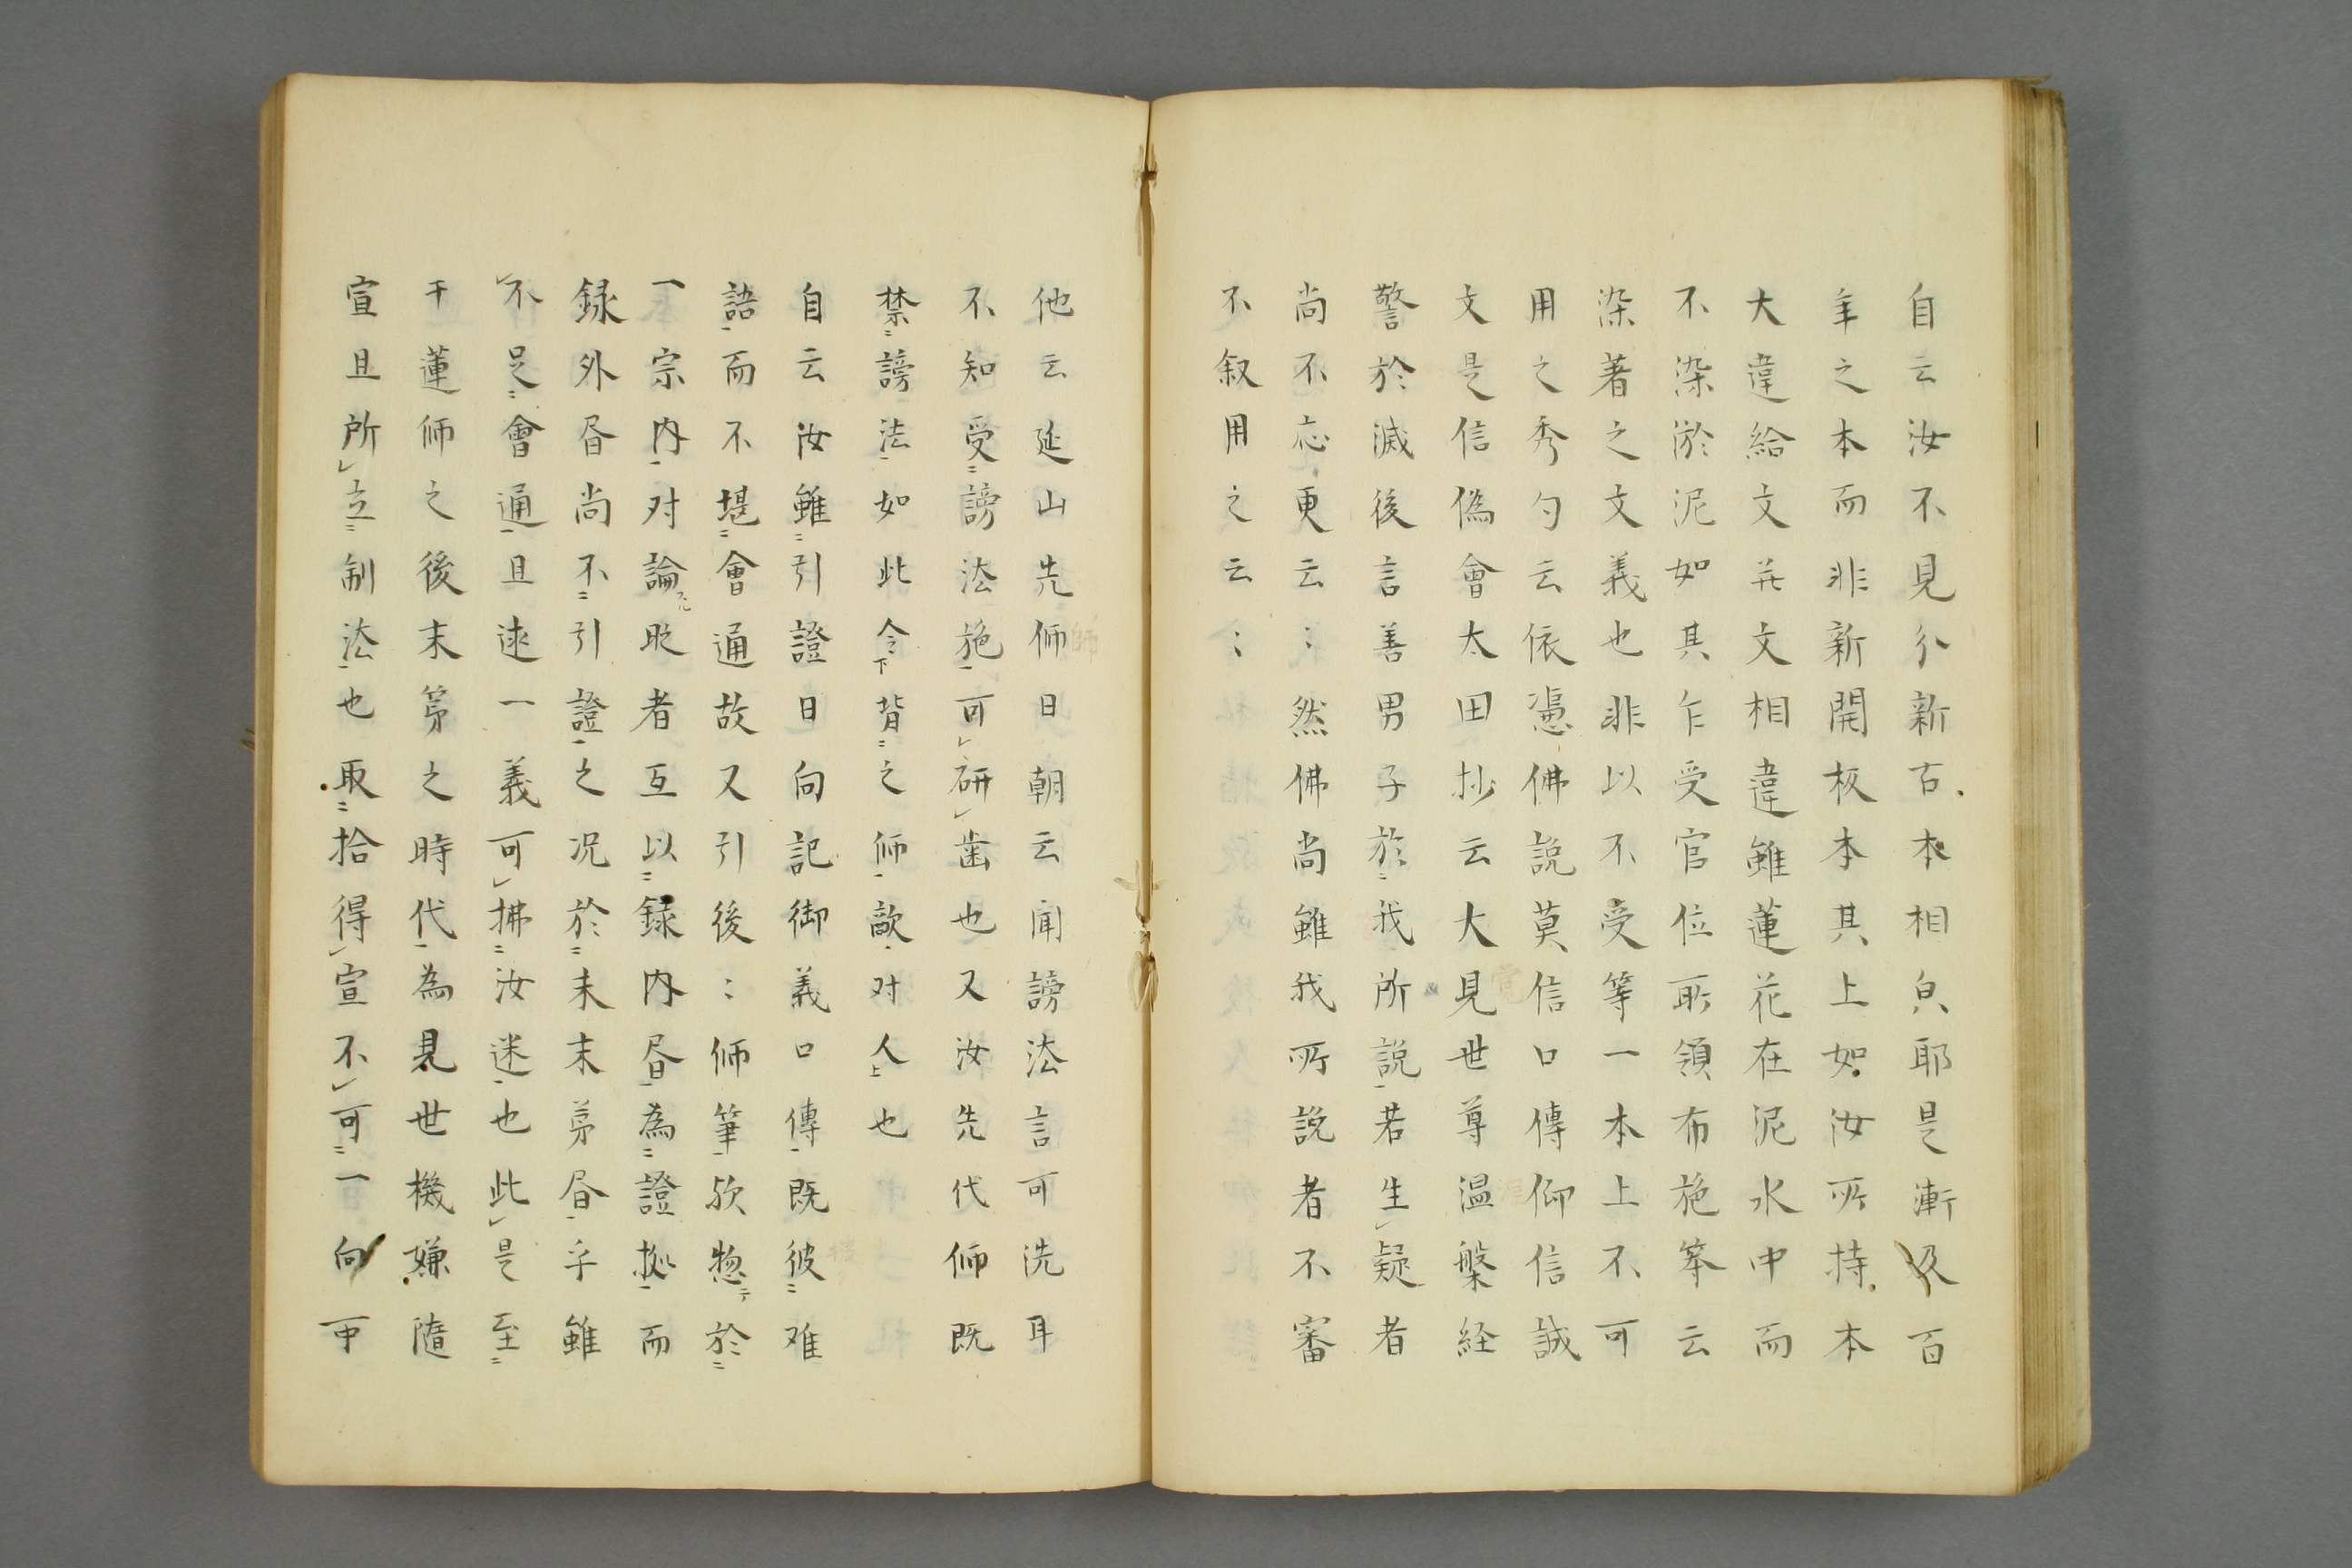 自云汝不見分新古本相貟耶是漸及百
年之本而非新開板本其上如汝所持本
大違給文并文相違雖蓮花在泥水中而
不染淤泥如其乍受官位所領布施筆云
染著之文義也非以不受等一本上不可
用之秀勺云依憑佛説莫信口傳仰信誠
文是信偽會太田抄云大見世尊温槃経
警於滅後言善男子於我所説若生疑者
尚不応更云〻然佛尚雖我所説者不審
不叙用之云〻
他云延山先师日朝云聞謗法言可洗耳
不知受謗法施可研歯也又汝先代师既
禁謗法如此令背之师敵对人也
自云汝雖引證日向記御義口傳既彼难
語而不堪會通故又引後〻师筆欤惣於
一宗内对論時者互以録内昏為證拠而
録外昏尚不引證之况於末末苐昏乎雖
不足會通且逑一義可拂汝迷也此是至
干蓮师之後末苐之時代為見世機嫌隨
宣且所立制法也取拾得宣不可一向用